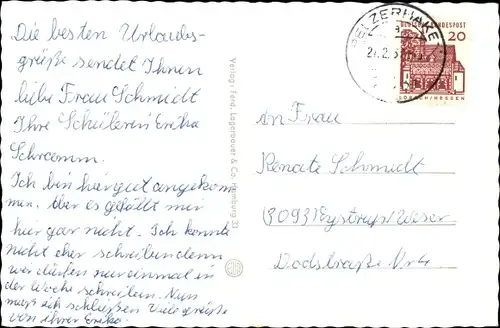 Die besten Urlaubs-
grüße sendet Ihnen
liebe Frau Schmidt
Ihre Schülerin Erika
Schramm.
Ich bin hir gut angekom
men. Aber es gefällt mir
hir gar nicht. Ich konnte
nicht eher schreiben denn
wir dürfen nur einmal in
der Woche schreiben. Nun
muß ich schlißen Viele grüße
von ihrer Erika
Verlag: Ferd. Lagerbauer & Co. Hamburg 33
PELZERHAKEN
DEUTSCHE BUNDESPOST
20
LORSCH/HESSEN
An Frau
Renate Schmidt
(3093) Eystrup/Weser